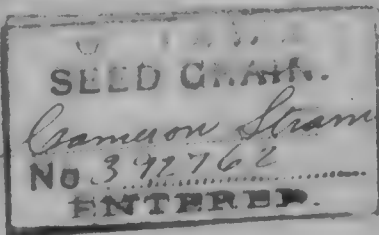 SEED GRAIN.
Cameron Strain
No 392762
ENTERED.